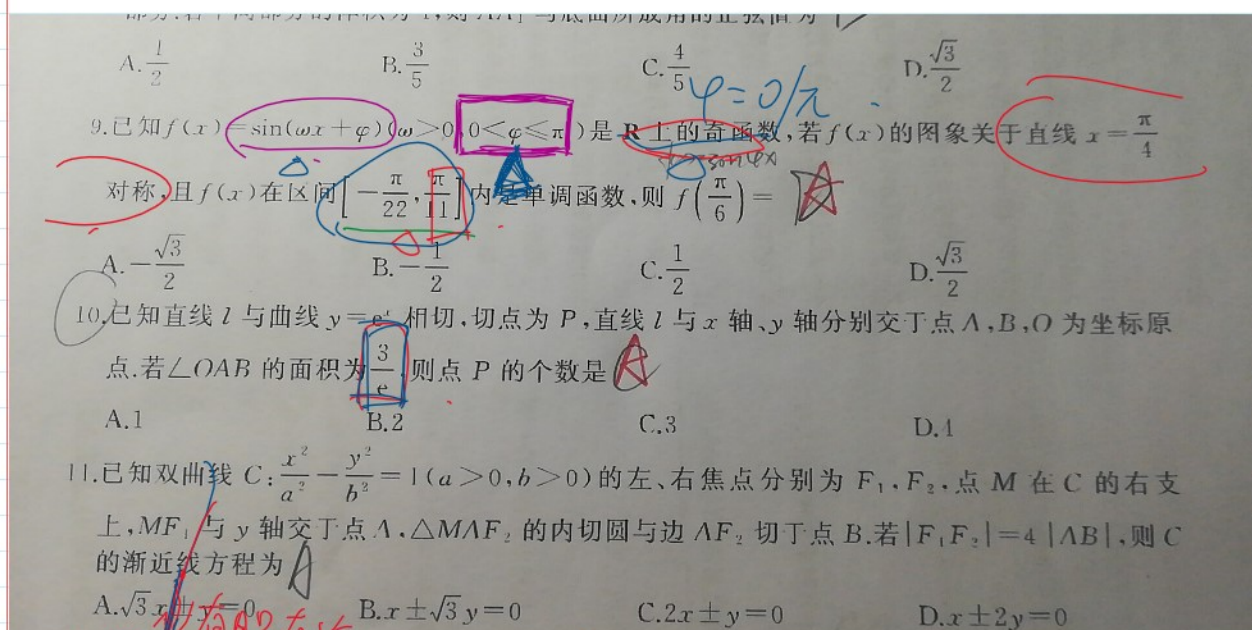 A. 1/2 B. 3/5 C. 4/5 D. √3/2
φ=0/π
9.已知f(x)=sin(ωx+φ)(ω>0,0<φ≤π)是R上的奇函数,若f(x)的图象关于直线x=π/4
对称,且f(x)在区间[-π/22,π/11]内是单调函数,则f(π/6)= A
A.-√3/2 B.-1/2 C.1/2 D.√3/2
10.已知直线l与曲线y=eˣ相切,切点为P,直线l与x轴、y轴分别交于点A,B,O为坐标原
点.若∠OAB的面积为3/e,则点P的个数是 A
A.1 B.2 C.3 D.4
11.已知双曲线C:x²/a²-y²/b²=1(a>0,b>0)的左、右焦点分别为F₁,F₂,点M在C的右支
上,MF₁与y轴交于点A,△MAF₂的内切圆与边AF₂切于点B.若|F₁F₂|=4|AB|,则C
的渐近线方程为 A
A.√3x±y=0 B.x±√3y=0 C.2x±y=0 D.x±2y=0